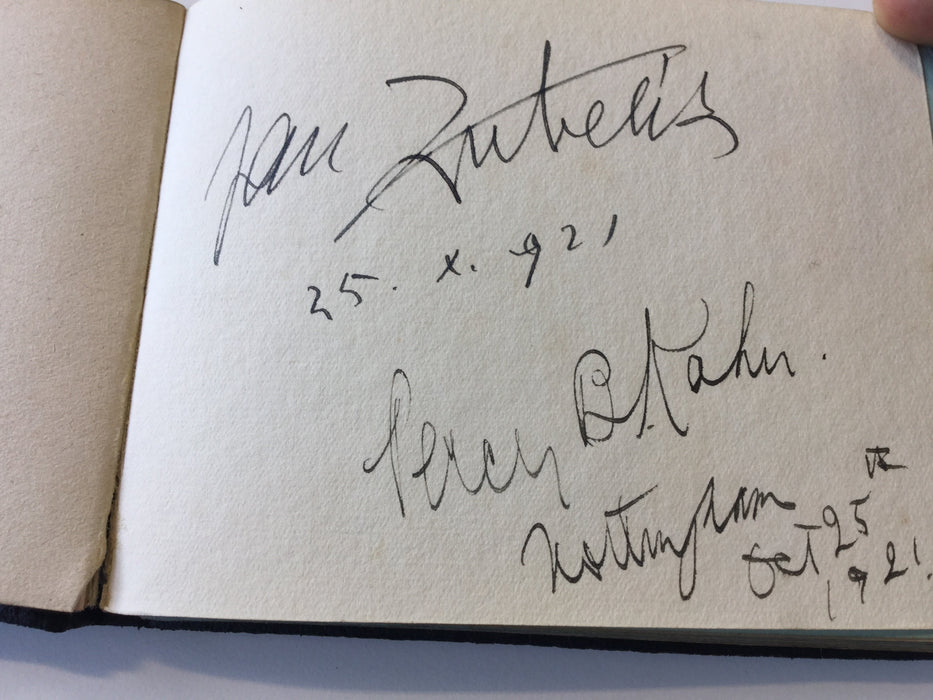 Jan Kubelík
25. X. 921
Percy B Kahn.
Nottingham Oct 25th
1921.